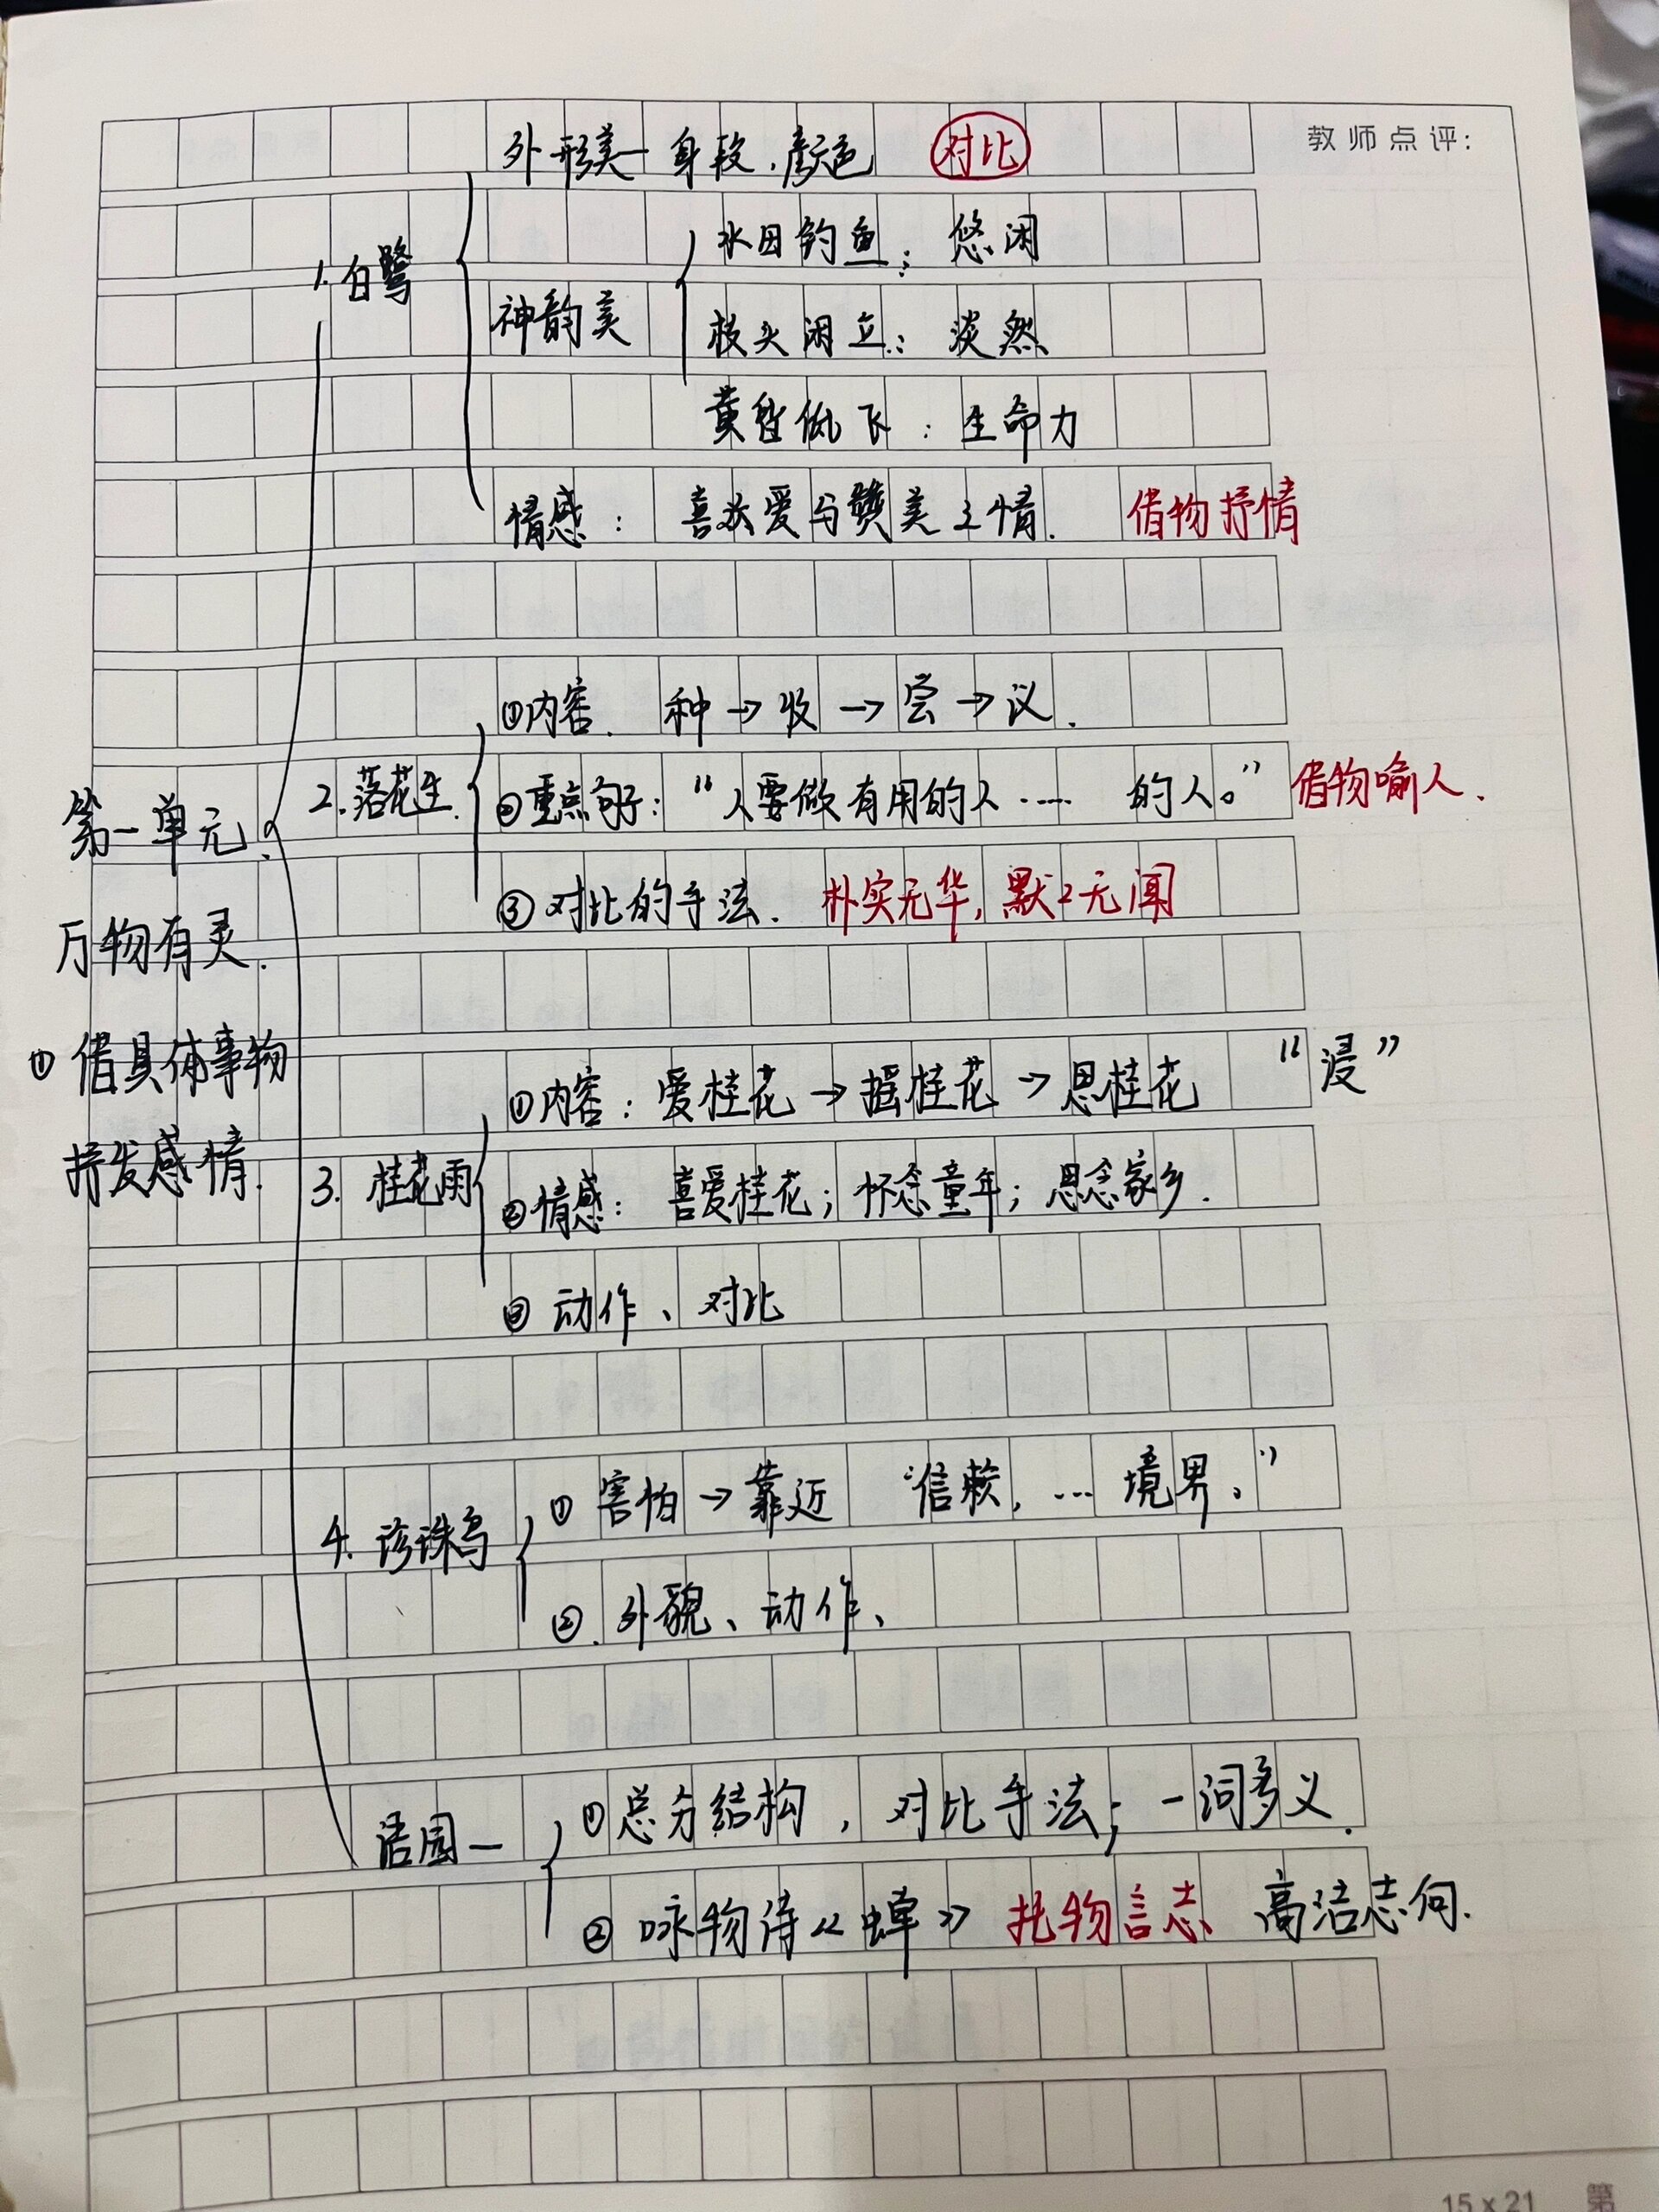 教师点评：
外形美— 身段.颜色 对比
1.白鹭
水田钓鱼： 悠闲
神韵美
枝头闲立： 淡然
黄昏低飞： 生命力
情感： 喜爱与赞美之情. 借物抒情
①内容. 种→收→尝→议.
2.落花生.
②重点句子：“人要做有用的人…… 的人。” 借物喻人.
第一单元.
③对比的手法. 朴实无华,默默无闻
万物有灵.
①借具体事物
①内容：爱桂花→摇桂花→思桂花 “浸”
抒发感情.
3. 桂花雨
②情感： 喜爱桂花；怀念童年；思念家乡.
③ 动作、对比
① 害怕→靠近 “信赖,… 境界。”
4. 珍珠鸟
②. 外貌、动作、
①总分结构, 对比手法; 一词多义.
语园一
② 咏物诗《蝉》 托物言志 高洁志向.
15×21 第